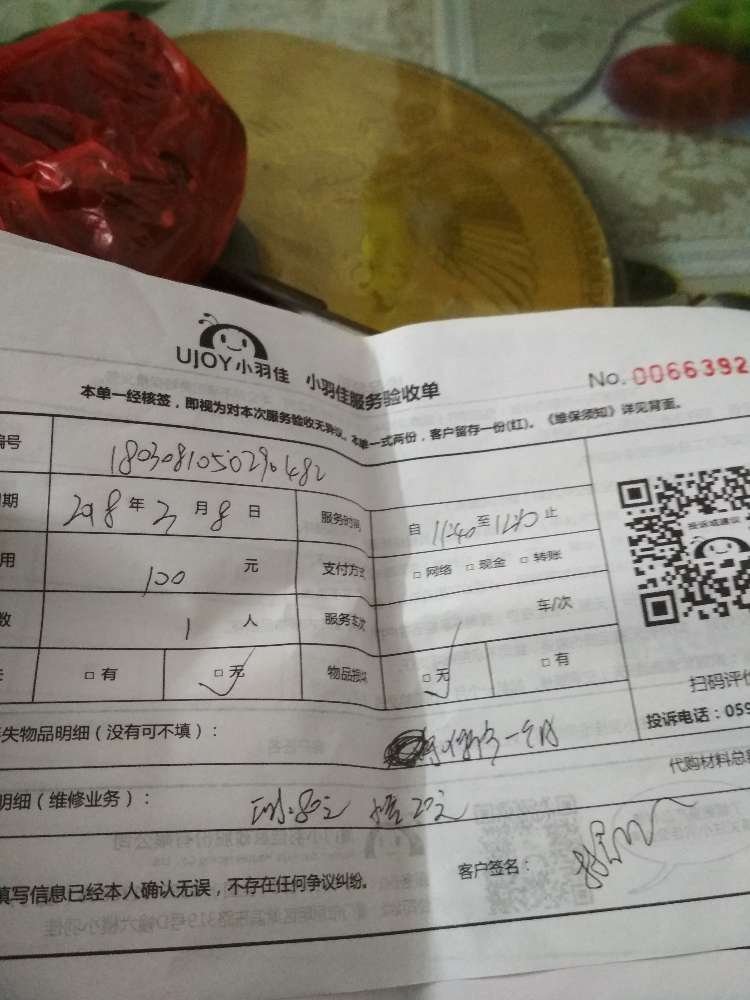 UJOY小羽佳 小羽佳服务验收单
No. 0066392
本单一经核签，即视为对本次服务验收无异议。本单一式两份，客户留存一份(红)。《维保须知》详见背面。
编号 1803081050290482
日期 2018年3月8日 服务时间 自11:40至12:20止
用 100元 支付方式 □网络 □现金 □转账
数 1人 服务车次 车/次
□有 □无 物品损坏 □无 □有
投诉或建议
扫码评价
失物品明细（没有可不填）：
投诉电话：059
代购材料总
明细（维修业务）： 80元 20元
填写信息已经本人确认无误，不存在任何争议纠纷。 客户签名：